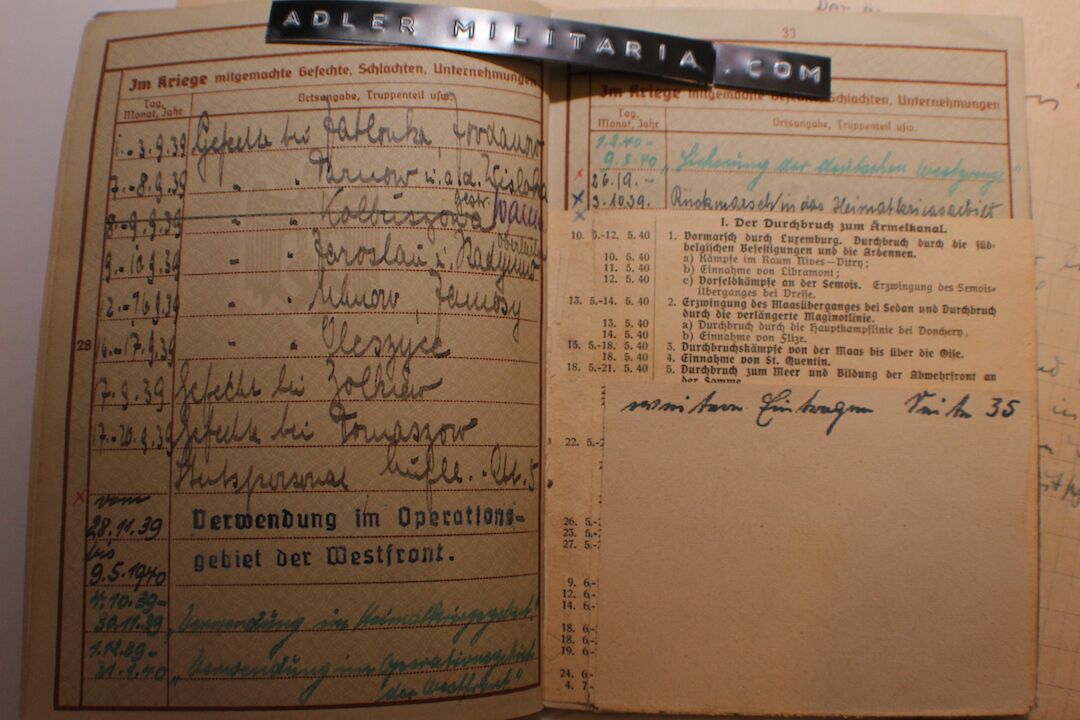 ADLER MILITARIA.COM
Im Kriege mitgemachte Gefechte, Schlachten, Unternehmungen
Tag, Monat, Jahr
Ortsangabe, Truppenteil usw.
1.-3.9.39 Gefechte bei Jablonka, Jordanow
7.-8.9.39 " " Tarnow u. a. d. Wisloka
8.-9.9.39 " " Kolbuszowa gestr.
9.-10.9.39 " " Jaroslau u. Radymno
" " Zamosz
16.-17.9.39 " " Oleszyce
17.9.39 Gefecht bei Zolkiew
17.-20.9.39 Gefechte bei Tomaszow
28
vom
28.11.39
bis
9.5.1940
Verwendung im Operations-
gebiet der Westfront.
4.10.39-
30.11.39 "Verwendung im Heimatkriegsgebiet"
1.12.39-
31.1.40 "Verwendung im Operationsgebiet
der Westfront"
33
Im Kriege mitgemachte Gefechte, Schlachten, Unternehmungen
Tag, Monat, Jahr
Ortsangabe, Truppenteil usw.
1.2.40-
9.5.40 "Sicherung der deutschen Westgrenze"
26.19.-
3.10.39. Rückmarsch in das Heimatkriegsgebiet
I. Der Durchbruch zum Ärmelkanal.
10. 5.-12. 5. 40 1. Vormarsch durch Luxemburg. Durchbruch durch die süd-
belgischen Befestigungen und die Ardennen.
10. 5. 40 a) Kämpfe im Raum Nives—Vitry;
11. 5. 40 b) Einnahme von Libramont;
12. 5. 40 c) Vorfeldkämpfe an der Semois. Erzwingung des Semois-
Überganges bei Bresse.
13. 5.-14. 5. 40 2. Erzwingung des Maasüberganges bei Sedan und Durchbruch
durch die verlängerte Maginotlinie.
13. 5. 40 a) Durchbruch durch die Hauptkampflinie bei Donchery,
14. 5. 40 b) Einnahme von Flize.
15. 5.-18. 5. 40 3. Durchbruchskämpfe von der Maas bis über die Oise.
18. 5. 40 4. Einnahme von St. Quentin.
18. 5.-21. 5. 40 5. Durchbruch zum Meer und Bildung der Abwehrfront an
der Somme
Eintragen Seite 35
22. 5.-
26. 5.-
23. 5.-
27. 5.-
9. 6.-
12. 6.-
14. 6.-
18. 6.-
18. 6.-
19. 6.-
24. 6.-
4. 7.-